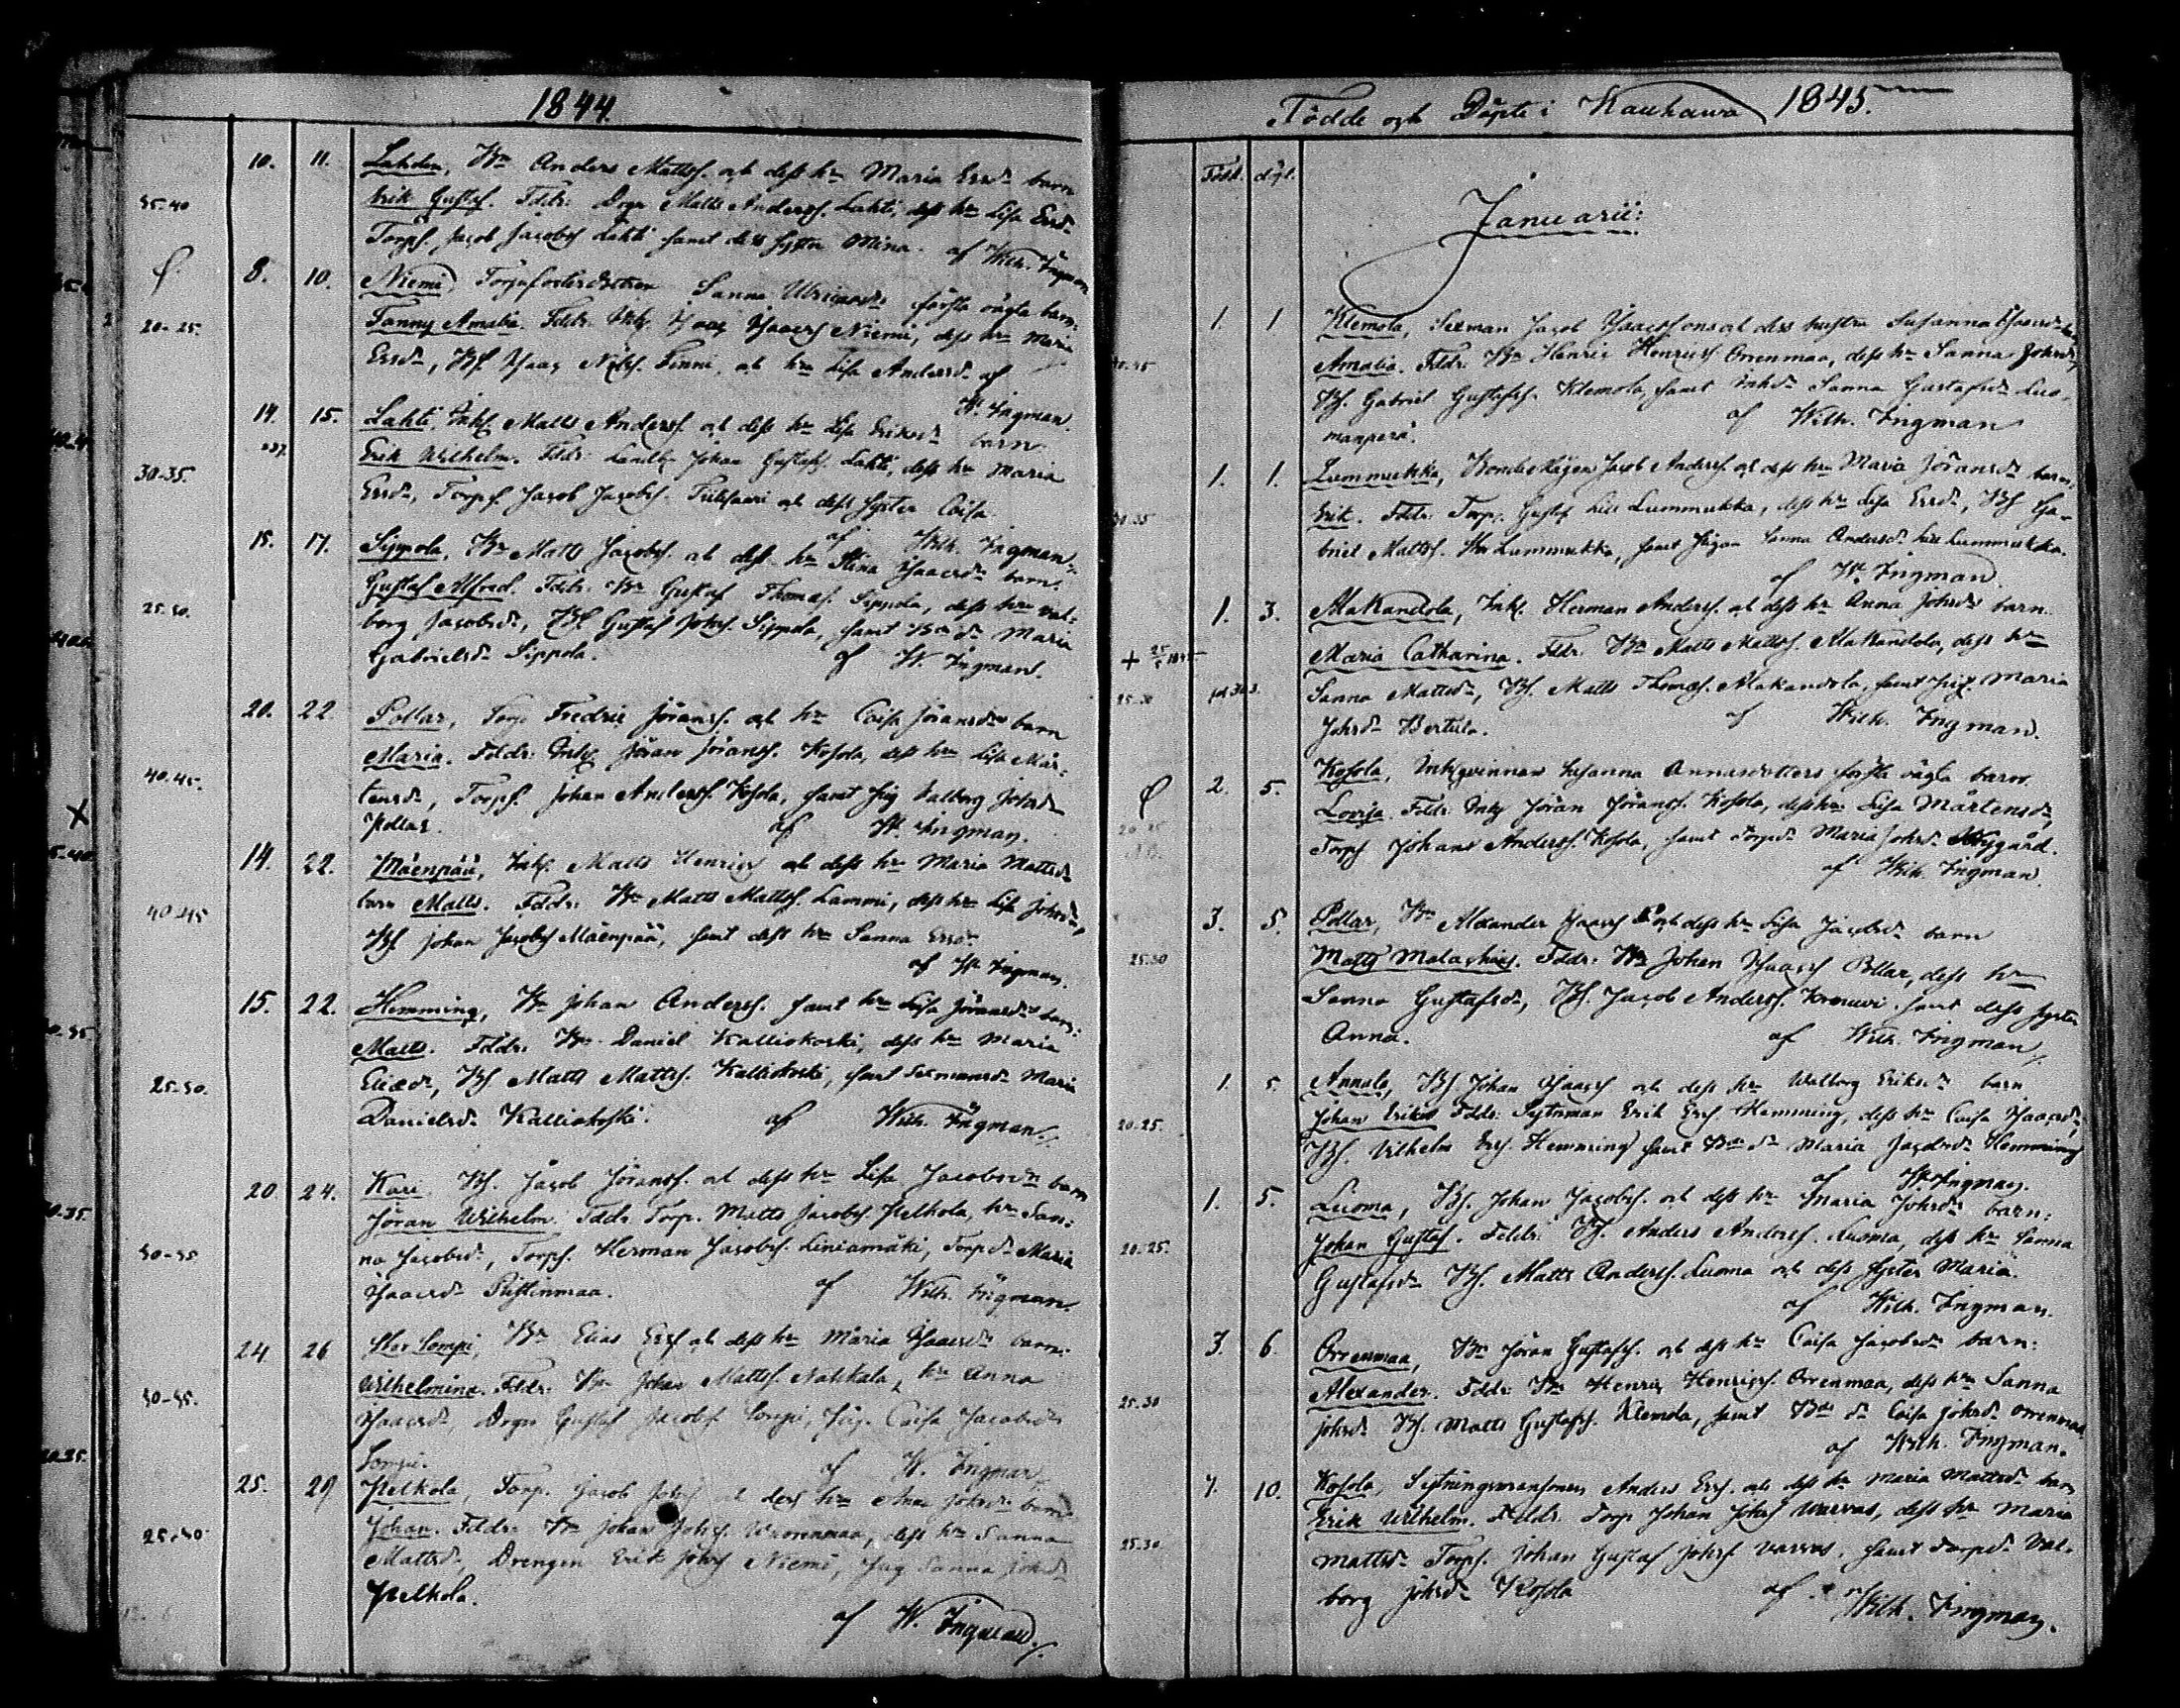 1844.
10. 11. Lahden, Bn Anders Mattss. och dess hu Maria Ersdr barn
35-40 Erik Gustaf. Fddr: Drgn Matts Anderss. Lahti, dess hu Lisa Ersdr
Torps. Jacob Jacobss Lahti samt dess syster Mina. af Wilh. Ingman
8. 10. Niemi, Sanna första oägta barn:
20-25. Fanny Amalia. Fddr. Inh. Isaac Isaacss Niemi, dess hu Maria
Ersdr, Bs. Isaac Finni, och hu Lisa Andersdr af
W. Ingman.
14. 15. Lahti, Inh. Matts Anderss. och dess hu Lisa Eriksdr barn
Erik Wilhelm. Fddr. Johan Gustafss. Lahti, dess hu Maria
30-35. Ersdr, Torps. Jacob Jacobss. och dess syster Caisa.
af Wilh. Ingman.
15. 17. Sippola, Bn Matts Jacobss. och dess hu Stina Isaacsdr barn:
Gustaf Alfred. Fddr: Bn Gustaf Thomas. Sippola, dess hu Val-
25-30. borg Jacobsdr, Bs. Gustaf Johss. Sippola, samt Bdr Maria
Gabrielsdr Sippola. af W. Ingman.
20. 22. Pollar, Torp Fredric Jöranss. och hu Caisa Jöransdr barn
Maria. Fddr: Inh. Jöran Jöranss. Kosola, dess hu Lisa Mår-
40-45. tensdr, Torps. Johan Anderss. Kosola, samt pig Valborg Johsdr
Pollar. af W. Ingman.
14. 22. Mäenpää, Inh. Matts Henricss och dess hu Maria Mattsdr
40-45 barn Matts. Fddr. Bn Matts Mattss. Lammi, dess hu Lisa Johsdr,
Bs Johan Jacobss Mäenpää, samt dess hu Sanna Ersdr
af W. Ingman.
15. 22. Hemming, Bn Johan Anderss. samt hu Lisa Jöransdr barn:
Matts. Fddr. Bn Daniel Kalliokoski, dess hu Maria
25-30. Eliædr, Bs Matts Mattss. Kalliokoski, samt Sexmansdr Maria
Danielsdr Kalliokoski. af Wilh. Ingman.
20 24. Kari Bs. Jacob Jöranss. och dess hu Lisa Jacobsdr barn
Jöran Wilhelm. Fddr. Torp. Matts Jacobss. Pelkola, hu San-
30-35 na Jacobsdr, Torps. Herman Jacobss. Liniamäki, Torpdr Maria
Isaacsdr Pistinmaa. af Wilh. Ingman.
24 26 Stor Sompi, Bn Elias Erss och dess hu Maria Isaacsdr barn:
Wilhelmina. Fddr. Bn Johan Mattss. Nahkala, hu Anna
30-35. Isaacsdr, Drgn Gustaf Jacobss. Sompi, Pig. Caisa Jacobsdr
Sompi. af W. Ingman.
25. 29 Pelkola, Torp. Jacob Johss och dess hu Anna Johsdr barn
Johan. Fddr. Bn Johan Johss. Wuorenmaa, dess hu Sanna
25-30 Mattsdr, Drengen Erik Johss Niemi, Pig Sanna Johsdr
Pelkola.
af W. Ingman.
Födde och Döpte i Kauhawa 1845.
Född. döpt.
Januarii:
1. 1 Klemola, Sexman Jacob Isaacsson och dess hustru Susanna Isaacsdr barn
Amalia. Fddr. Bn Henric Henricss Orrenmaa, dess hu Sanna Johsdr,
Bs. Gabriel Gustafss. Klemola, samt Inhdr Sanna Gustafsdr Luo-
manperä. af Wilh. Ingman
1. 1. Lummukka, Jacob Anderss och dess hu Maria Jöransdr barn,
Erik. Fddr. Torp. Gustaf Lill Lummukka, dess hu Lisa Ersdr, Bs Ga-
briel Mattss. Stor Lummukka, samt Pigan Sanna Andersdr Lill Lummukka.
af W. Ingman.
1. 3. Makandola, Inh. Herman Anderss. och dess hu Anna Johsdr barn.
+ 25/5 1845 Maria Catharina. Fddr. Bn Matts Mattss. Makandola, dess hu
25-30 Sanna Mattsdr, Bs. Matts Thomas. Makandola, samt pig. Maria
Johsdr Bertula. af Wilh. Ingman.
2. 5. Kosola, Inhqvinnan Susanna Annasdotters första oägta barn.
20-25 Lovisa. Fddr. Inh Jöran Jöranss. Kosola, dess hu Lisa Mårtensdr,
Torps Johan Anderss. Kosola, samt Torpdr Maria Johsdr Nygård.
af Wilh. Ingman.
3. 5. Pollar, Bn Alexander Isaacss och dess hu Lisa Jacobsdr barn
25-30 Matts Malachias. Fddr. Bn Johan Isaacss Pollar, dess hu
Sanna Gustafsdr, Bs. Jacob Anderss. samt dess syster
Anna. af Wilh. Ingman
1. 5. Annala, Bs Johan Isaacss och dess hu Walborg Eriksdr barn
20-25. Johan Erik. Fddr. Sytnman Erik Erss Hemming, dess hu Caisa Isaacsdr,
Bs. Vilhelm Erss. Hemming samt Bdr Maria Jacobsdr Hemming
af W. Ingman.
1. 5. Luoma, Bs. Johan Jacobss. och dess hu Maria Johsdr barn:
20-25. Johan Gustaf. Fddr. Bs. Anders Anderss. Luoma, dess hu Sanna
Gustafsdr Bs. Matts Anderss. Luoma och dess syster Maria.
af Wilh. Ingman.
3. 6. Orrenmaa, Bn Jöran Gustafss. och dess hu Caisa Jacobsdr barn:
25-30 Alexander. Fddr. Bn Henric Henricss. Orrenmaa, dess hu Sanna
Johsdr Bs. Matts Gustafss. Klemola, samt Bdr Caisa Johsdr Orrenmaa
af Wilh. Ingman.
7. 10. Kosola, Sytningsmansonen Anders Erss. och dess hu Maria Mattsdr barn
Erik Wilhelm. Fddr. Torp Johan Johss Warvas, dess hu Maria
25-30 Mattsdr Torps. Johan Gustaf Johss. Varvas, samt Torpdr Val-
borg Johsdr Kosola af Wilh. Ingman.